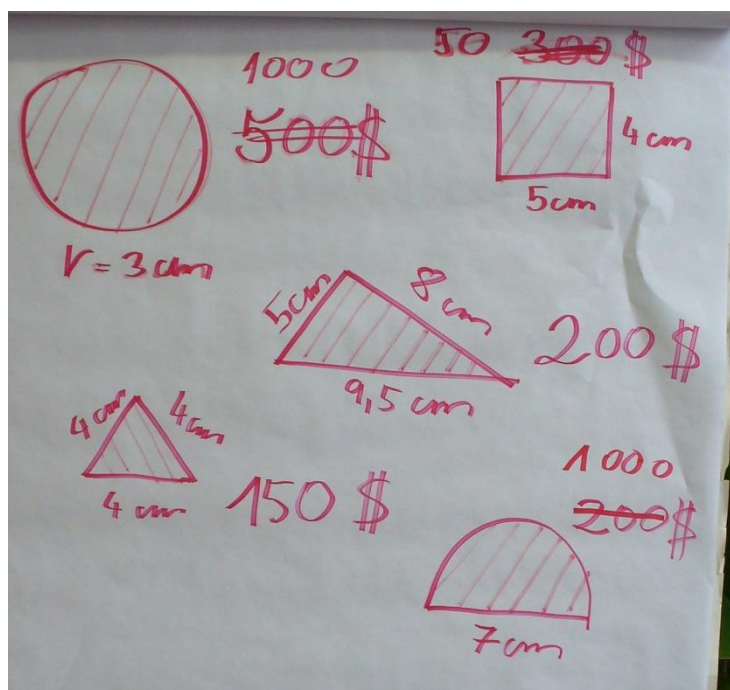 1000
500$
50 300$
4cm
5cm
r = 3cm
5cm
8cm
9,5cm
200$
4cm
4cm
4cm
150$
1000
200$
7cm